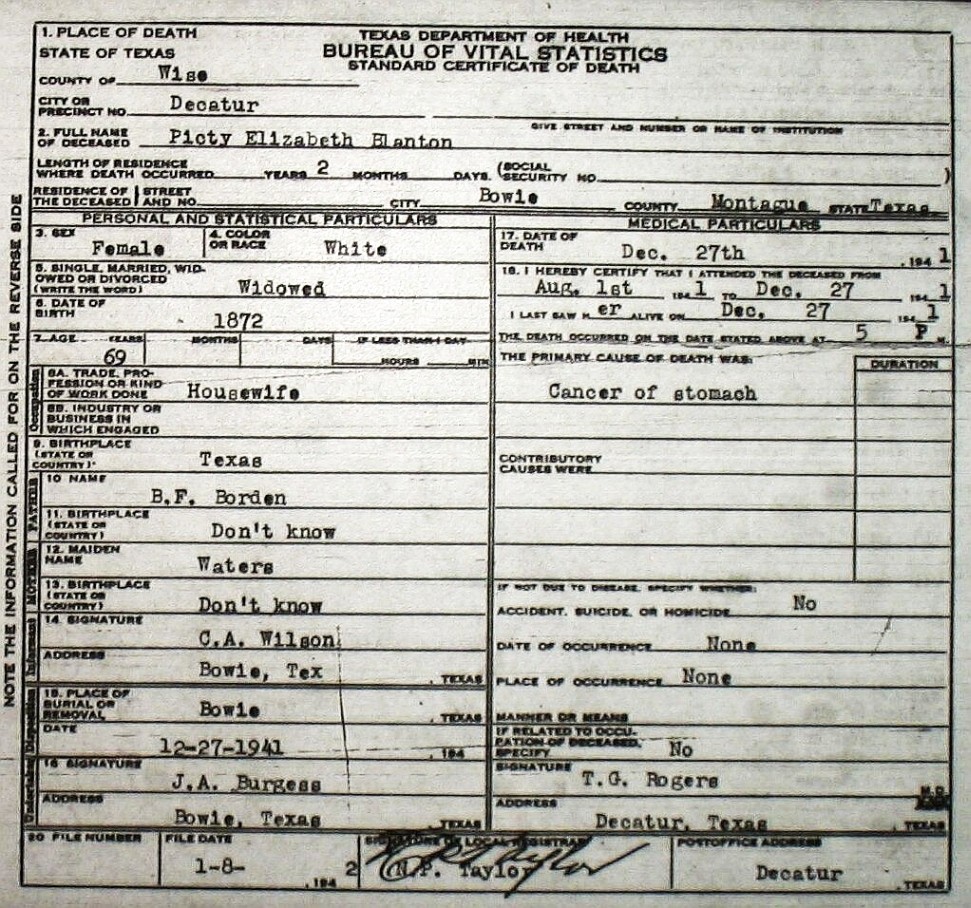 NOTE THE INFORMATION CALLED FOR ON THE REVERSE SIDE
TEXAS DEPARTMENT OF HEALTH
BUREAU OF VITAL STATISTICS
STANDARD CERTIFICATE OF DEATH
1. PLACE OF DEATH
STATE OF TEXAS
COUNTY OF Wise
CITY OR
PRECINCT NO. Decatur
GIVE STREET AND NUMBER OR NAME OF INSTITUTION
2. FULL NAME
OF DECEASED Picty Elizabeth Blanton
LENGTH OF RESIDENCE
WHERE DEATH OCCURRED YEARS 2 MONTHS DAYS. (SOCIAL SECURITY NO. )
RESIDENCE OF THE DECEASED STREET AND NO. CITY Bowie COUNTY Montague STATE Texas
PERSONAL AND STATISTICAL PARTICULARS
3. SEX Female
4. COLOR OR RACE White
5. SINGLE, MARRIED, WID-
OWED OR DIVORCED
(WRITE THE WORD) Widowed
6. DATE OF
BIRTH 1872
7. AGE YEARS MONTHS DAYS IF LESS THAN 1 DAY
69 HOURS MIN
Occupation
8A. TRADE, PRO-
FESSION OR KIND
OF WORK DONE Housewife
8B. INDUSTRY OR
BUSINESS IN
WHICH ENGAGED
9. BIRTHPLACE
(STATE OR
COUNTRY) Texas
FATHER
10 NAME
B.F. Borden
11. BIRTHPLACE
(STATE OR
COUNTRY) Don't know
MOTHER
12. MAIDEN
NAME Waters
13. BIRTHPLACE
(STATE OR
COUNTRY) Don't know
Informant
14. SIGNATURE
C.A. Wilson
ADDRESS
Bowie, Tex , TEXAS
Disposition
15. PLACE OF
BURIAL OR
REMOVAL Bowie , TEXAS
DATE
12-27-1941 , 194
16 SIGNATURE
J.A. Burgess
ADDRESS
Bowie, Texas , TEXAS
MEDICAL PARTICULARS
17. DATE OF
DEATH Dec. 27th , 194 1
18. I HEREBY CERTIFY THAT I ATTENDED THE DECEASED FROM
Aug. 1st 194 1 TO Dec. 27 194 1
I LAST SAW H er ALIVE ON Dec. 27 194 1
THE DEATH OCCURRED ON THE DATE STATED ABOVE AT 5 P M.
THE PRIMARY CAUSE OF DEATH WAS: DURATION
Cancer of stomach
CONTRIBUTORY
CAUSES WERE
IF NOT DUE TO DISEASE, SPECIFY WHETHER:
ACCIDENT, SUICIDE, OR HOMICIDE No
DATE OF OCCURRENCE None
PLACE OF OCCURRENCE None
MANNER OR MEANS
IF RELATED TO OCCU-
PATION OF DECEASED,
SPECIFY No
SIGNATURE
T.G. Rogers M.D.
ADDRESS
Decatur, Texas , TEXAS
20 FILE NUMBER
FILE DATE
1-8- , 194 2
SIGNATURE OF LOCAL REGISTRAR
N.P. Taylor
POSTOFFICE ADDRESS
Decatur , TEXAS